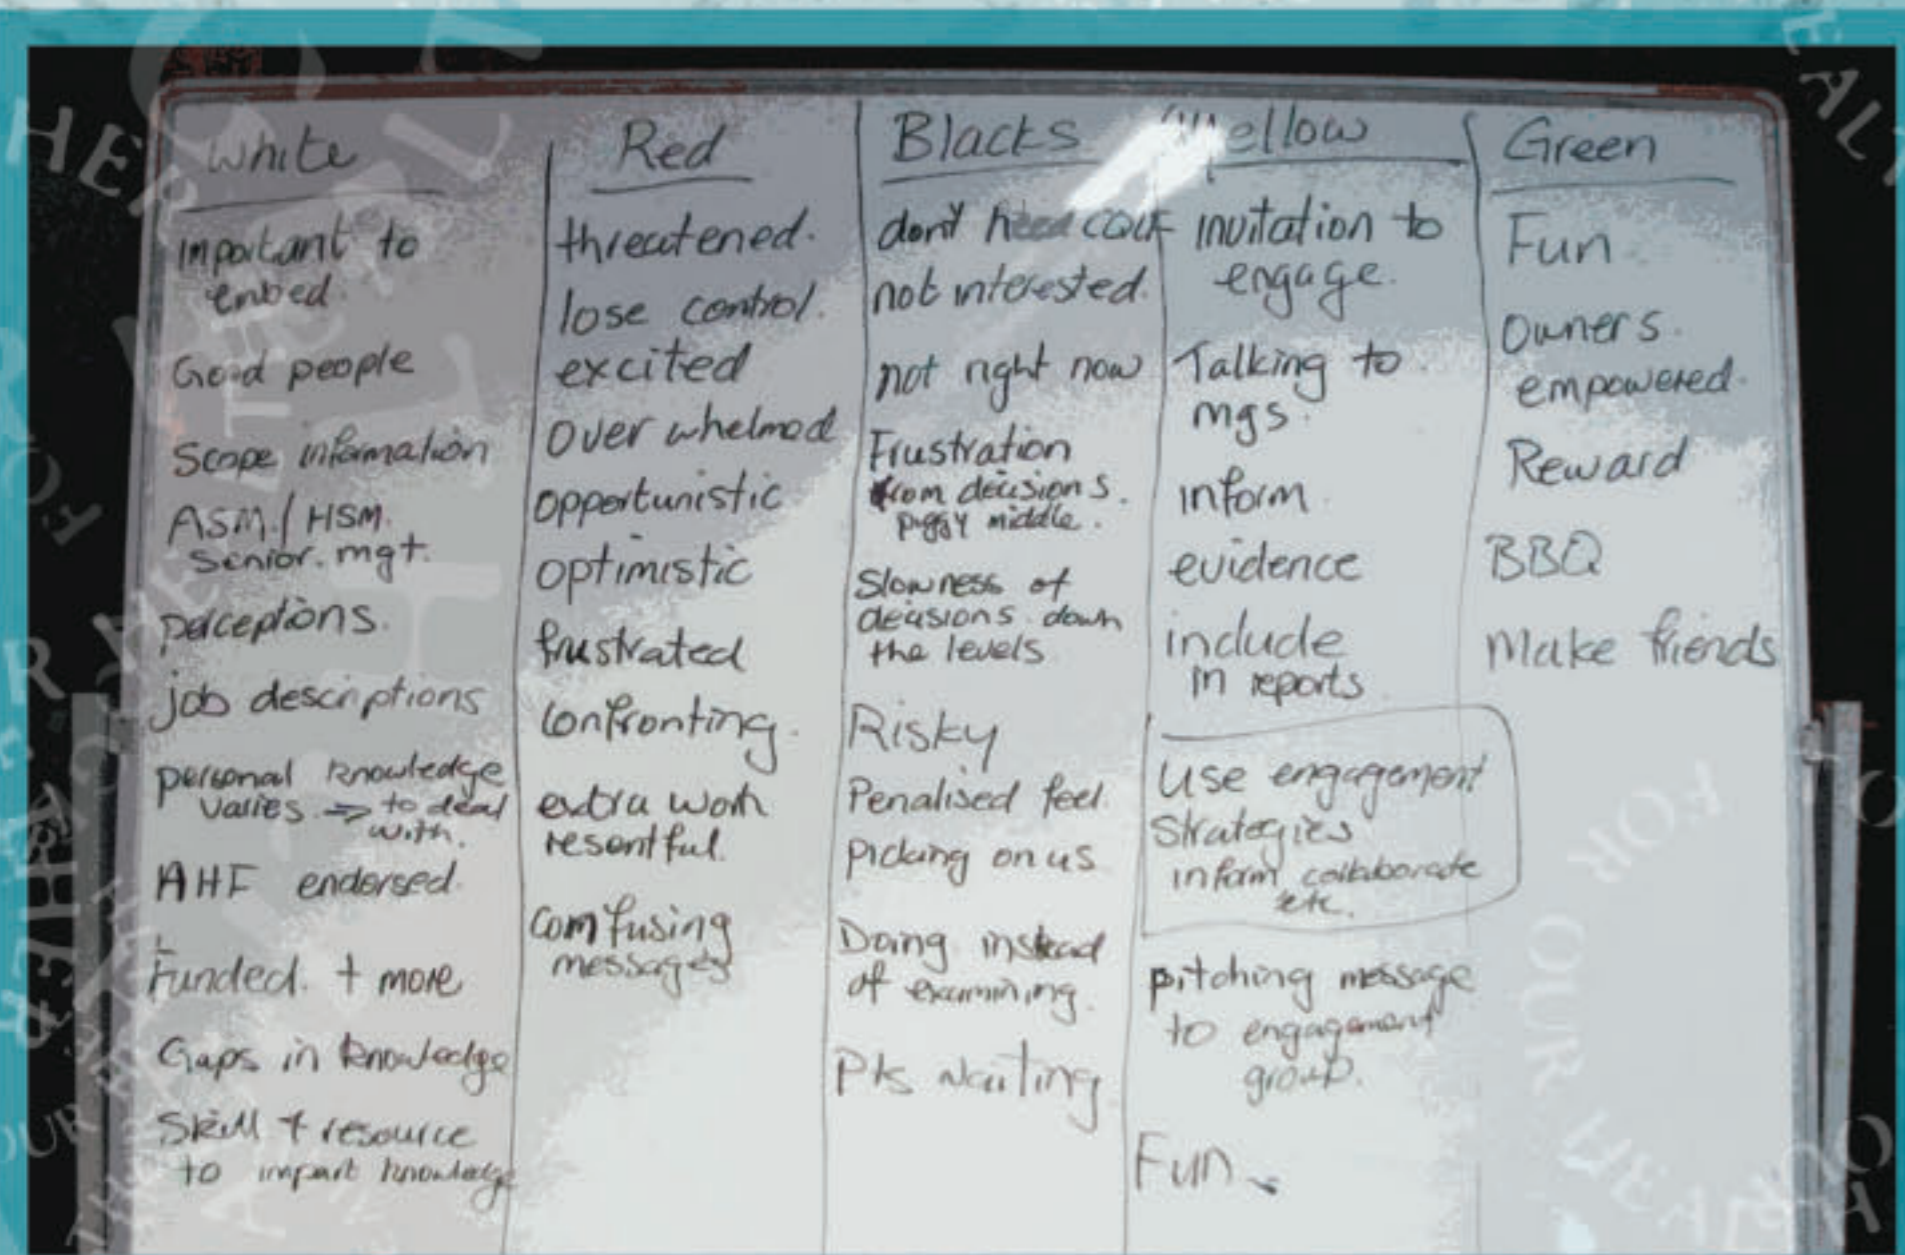 White
Important to
embed.
Good people
Scope information
ASM/HSM.
Senior. mgt.
perceptions.
job descriptions
personal knowledge
varies => to deal
with.
AHF endorsed.
Funded. + more
Gaps in knowledge
Skill + resource
to impart knowledge
Red
threatened.
lose control.
excited
Over whelmed
opportunistic
optimistic
frustrated
Confronting.
extra work
resentful.
Comfusing
messages
Blacks
don't need
not interested.
not right now
Frustration
from decisions.
piggy middle.
Slowness of
decisions down
the levels
Risky
Penalised feel.
Picking on us
Doing instead
of examining.
Pts waiting
Yellow
invitation to
engage.
Talking to
mgs.
inform
evidence
include
in reports
Use engagement
Strategies
inform collaborate
etc.
pitching message
to engagement
group.
Fun
Green
Fun
Owners.
empowered.
Reward
BBQ
Make friends
FOR
OUR HEALTH